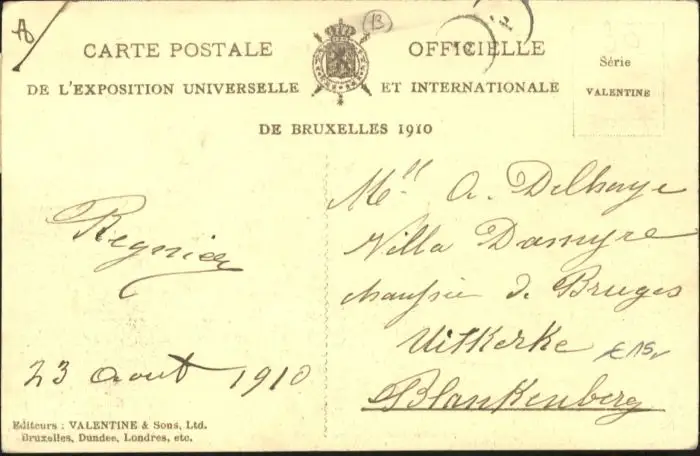 A
B
CARTE POSTALE OFFICIELLE
DE L'EXPOSITION UNIVERSELLE ET INTERNATIONALE
DE BRUXELLES 1910
Série
VALENTINE
Mlle A. Delhaye
Villa Damyre
chaussée de Bruges
Uitkerke
Blankenberg
€15,
Regnier
23 aout 1910
Editeurs : VALENTINE & Sons, Ltd.
Bruxelles, Dundee, Londres, etc.